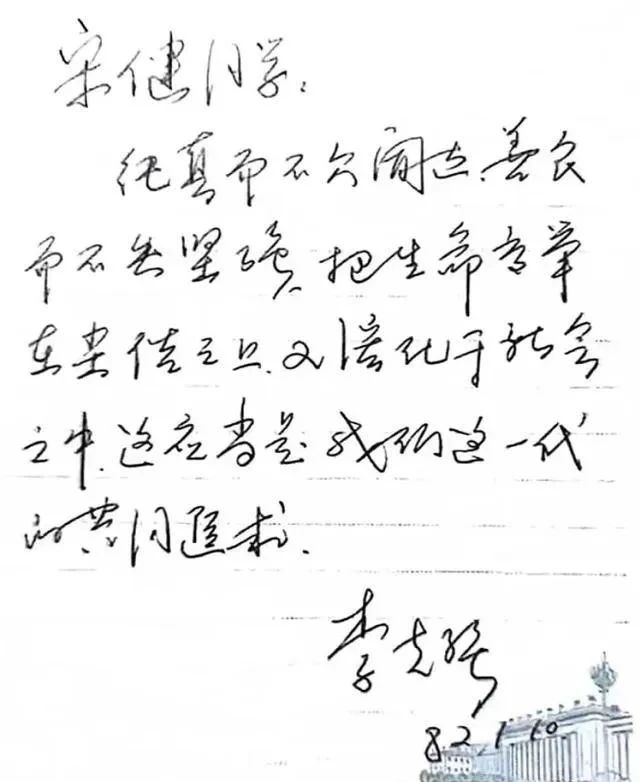 宋健同学：
纯真而不欠达、善良
而不失坚强、把生命高举
在尘俗之上、又溶化于社会
之中、这应当是我们这一代
的共同追求.
李克强
82.1.10.